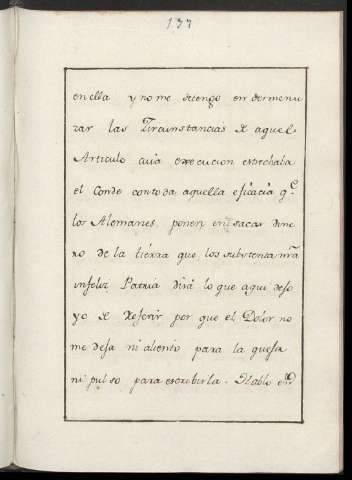 137
en ella y no me detengo en dormenu
zar las Circunstancias de aquel
Articulo cuia execucion estrechaba
el Conde con toda aquella eficacia q.e
los Alemanes ponen en sacar dine
ro de la tierra que los substenta mra
infeliz Patria dirá lo que aqui dejo
yo de Referir por que el Dolor no
me deja ni aliento para la quexa
ni pulso para escribirla. Hablo en